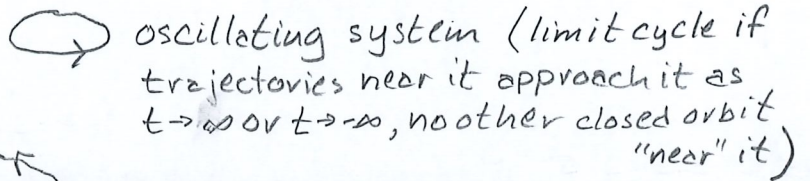 oscillating system (limit cycle if
trajectories near it approach it as
t→∞ or t→-∞, no other closed orbit
"near" it)